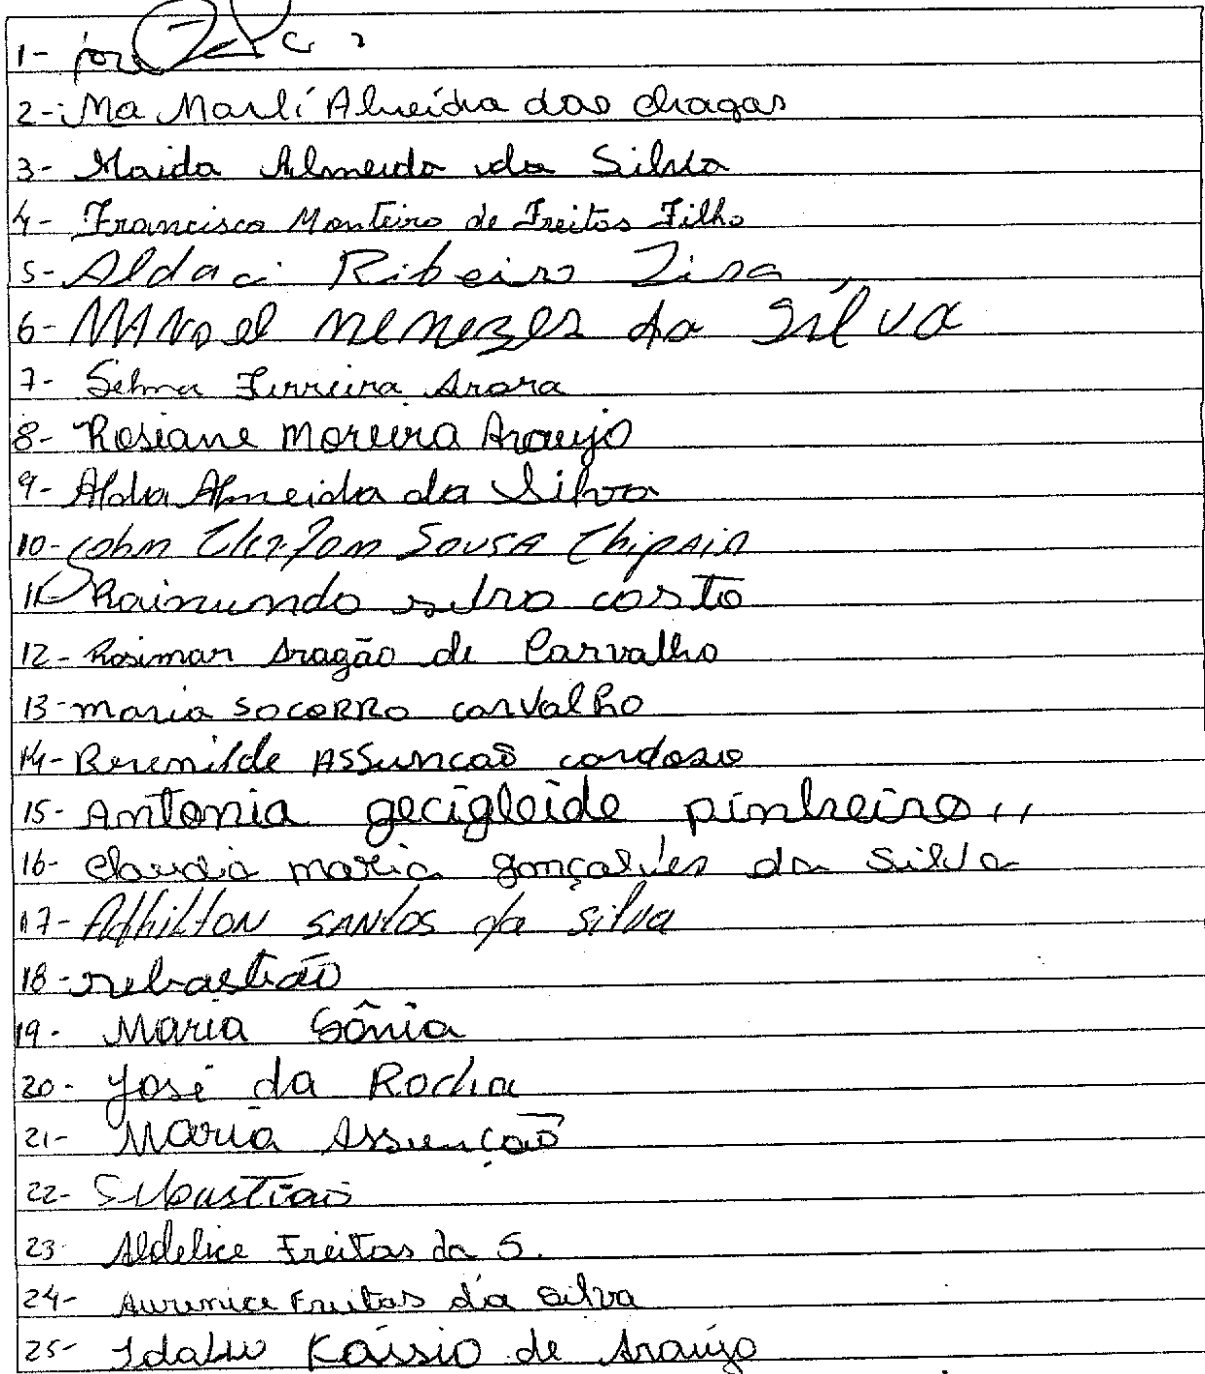 1-
2- Ma Marlí Almeida das chagas
3- Maida Almeida da Silva
4- Francisco Monteiro de Freitas Filho
5- Aldaci Ribeiro Lira
6- MANOel menezes da Silva
7- Selma Ferreira Arara
8- Rosiane Moreira Araujo
9- Alda Almeida da Silva
10- Sousa
11- Raimundo silva costa
12- Rosimar Aragão de Carvalho
13- maria SocoRRo carvalho
14- Berenilde ASSuncaõ cardoso
15- Antonia gecigleide pinheiro
16- claudia maria gonçalves da Silva
17- SANtos da silva
18- sebastião
19- Maria Sônia
20- José da Rocha
21- Maria Assunção
22- Sebastião
23- Aldelice Freitas da S.
24- Aurenice Freitas da silva
25- Kássio de Araújo